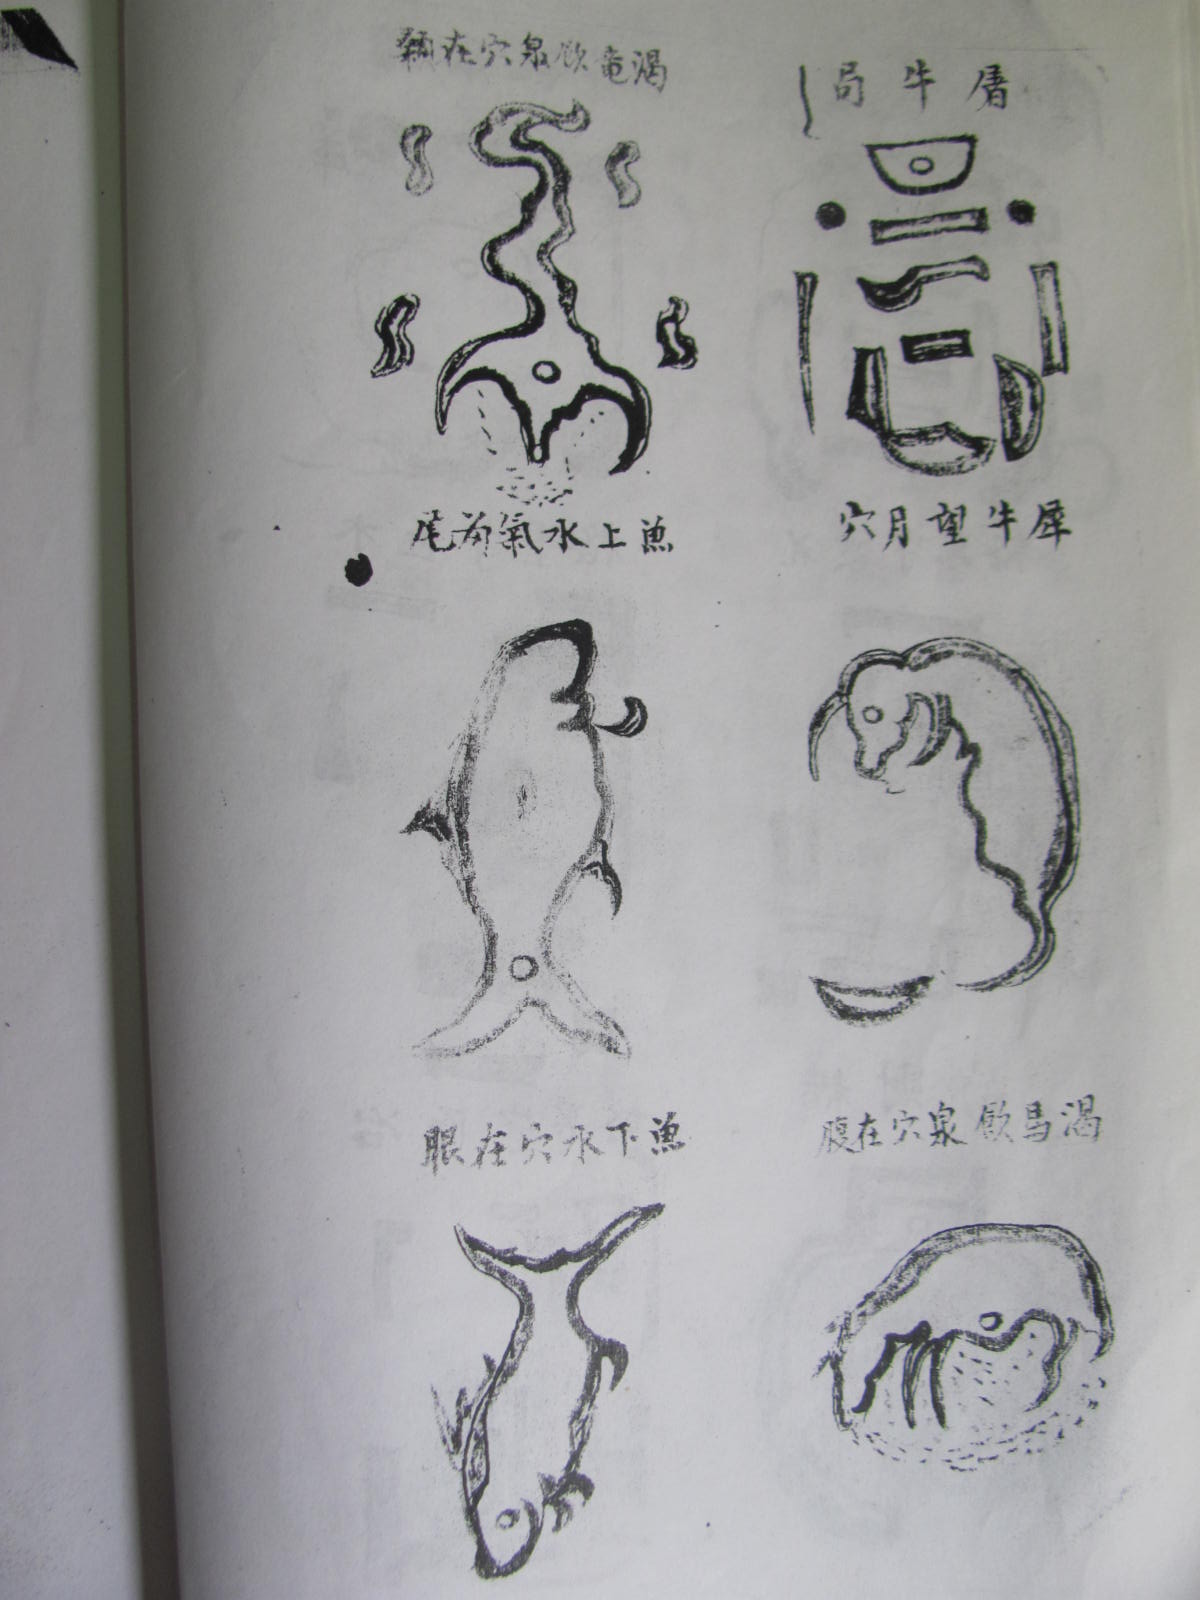 屠牛局
犀牛望月穴
渴馬飲泉穴在腹
渴竜飲泉穴在
魚上水氣尾
魚下水穴在眼